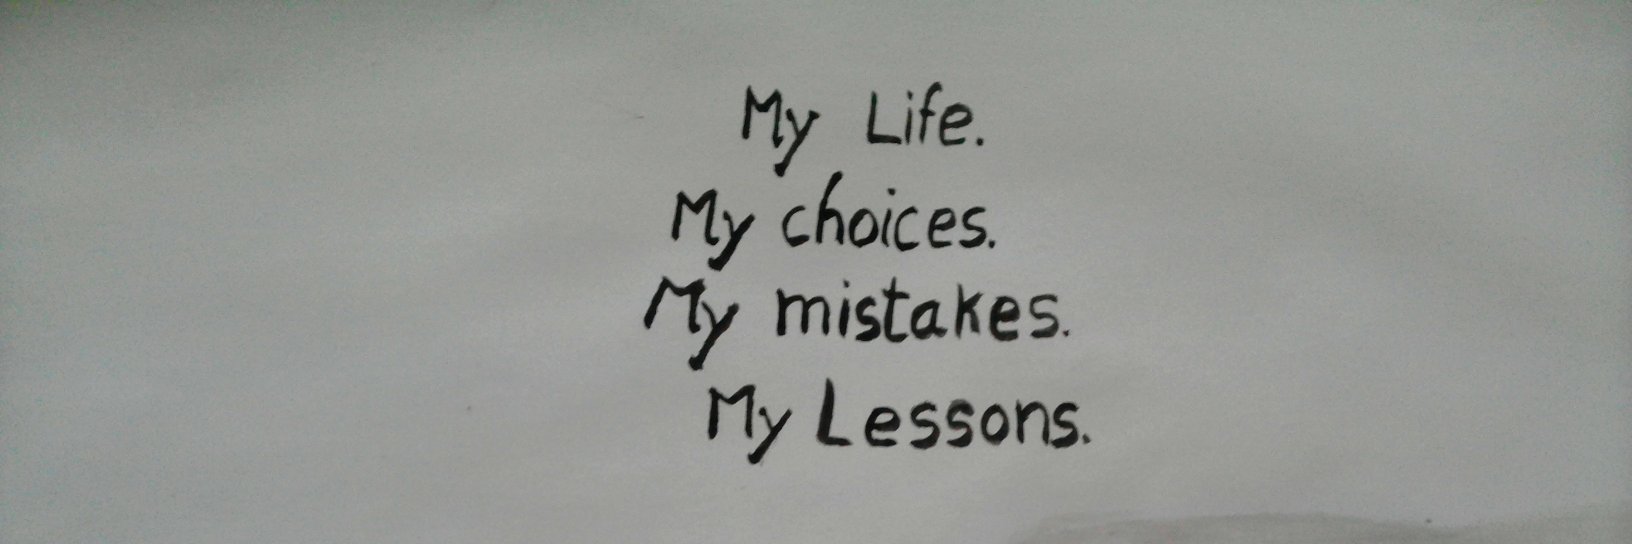 My Life.
My choices.
My mistakes.
My Lessons.